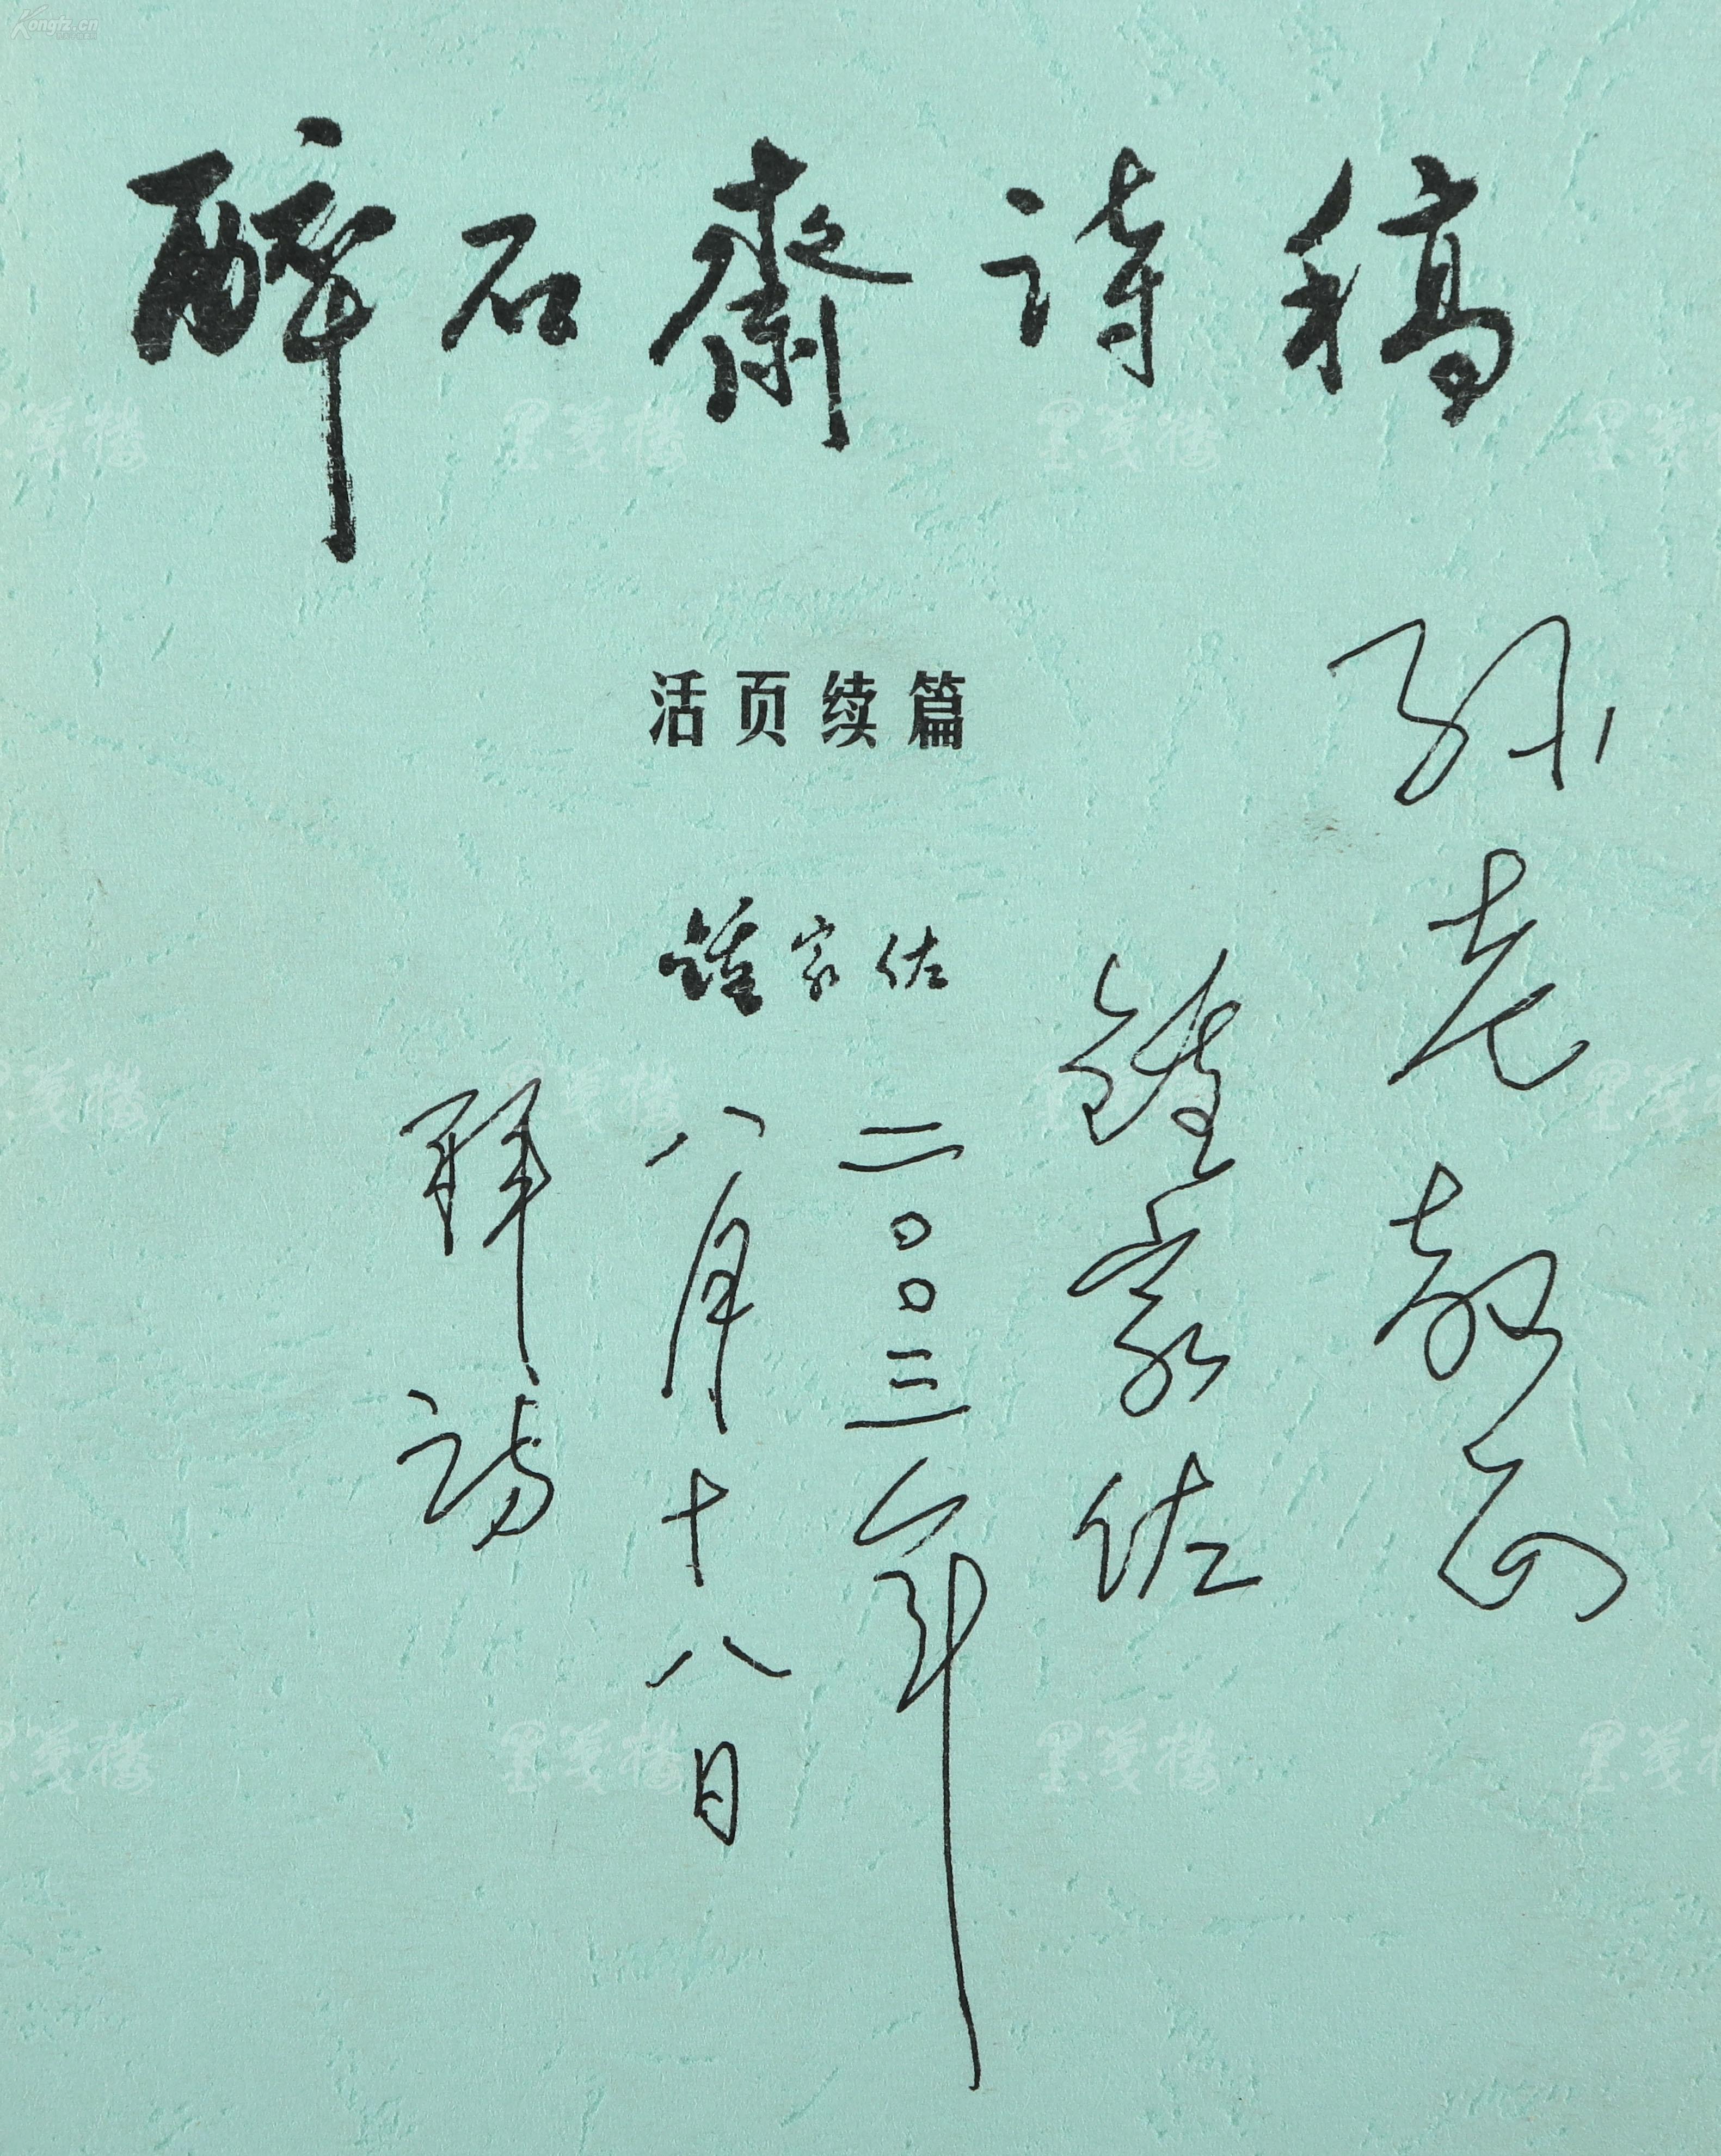 醉石斋诗稿
活页续篇
鍾家佐
孙老教正
鍾家佐
二〇〇三年
八月十八日
拜谒
Kongfz.cn
墨笺楼